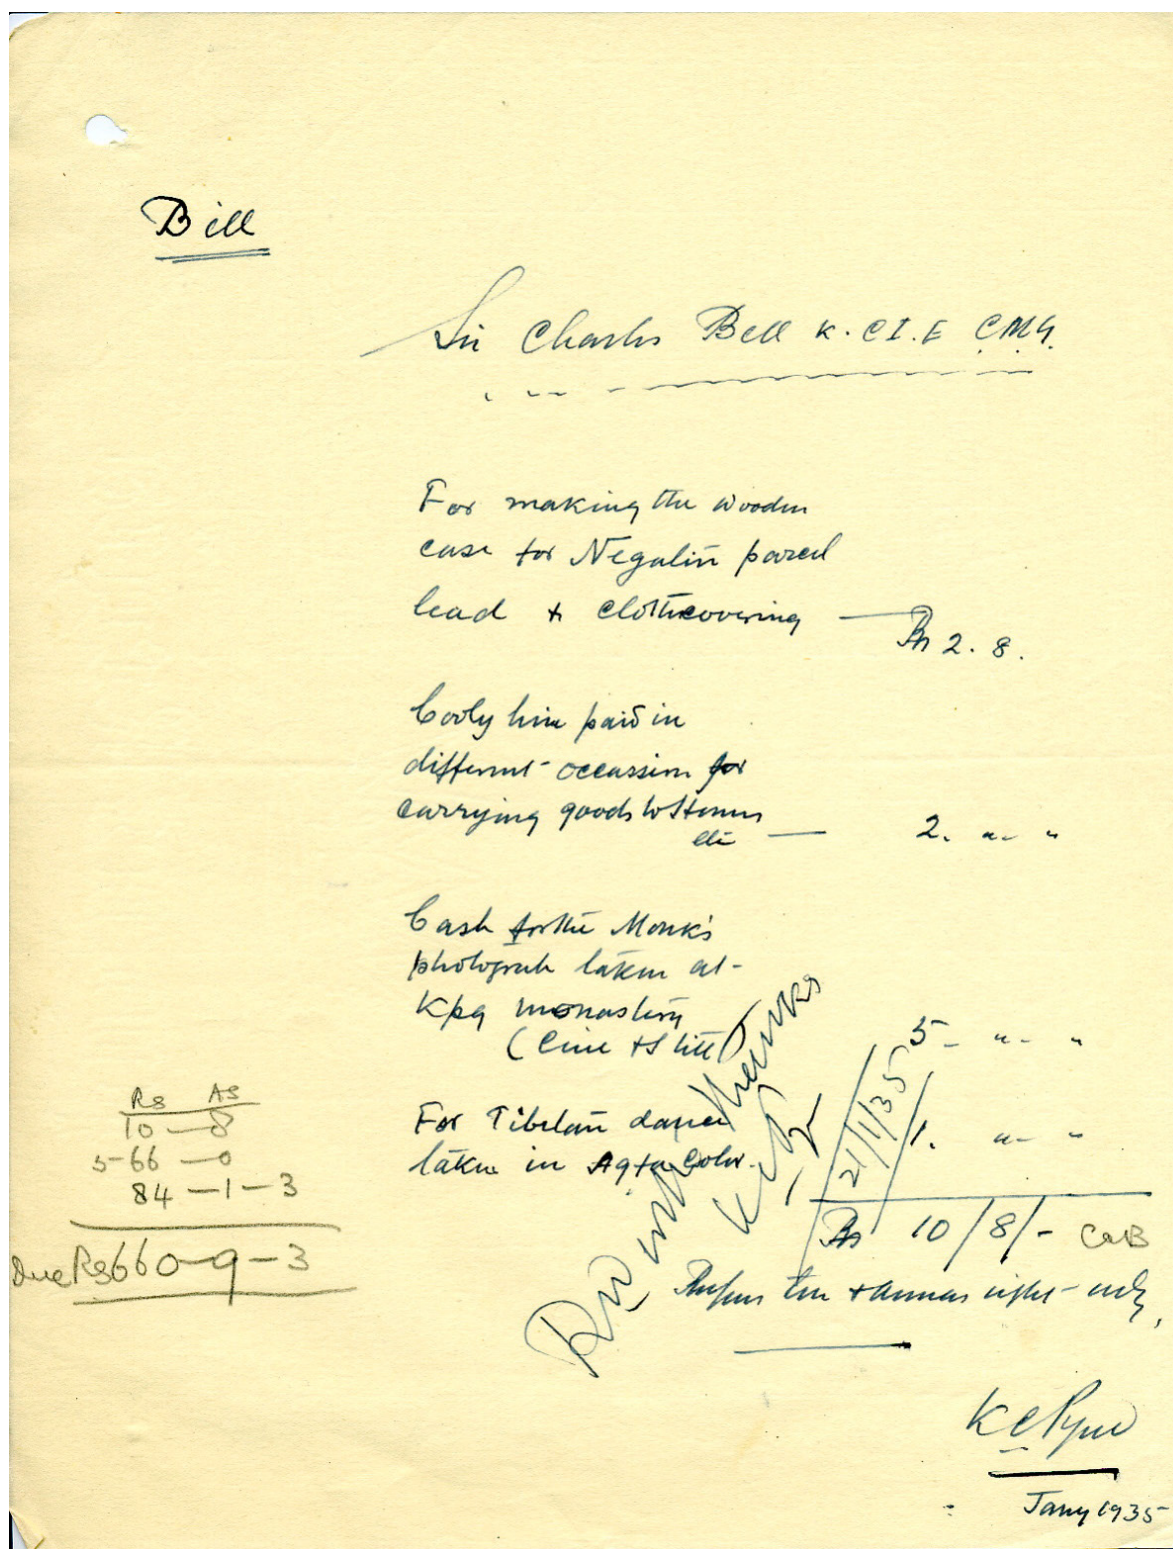 Bill
Sir Charles Bell K.C.I.E C.M.G.
For making the wooden
case for Negalin parcel
lead & cloth covering — Rs 2. 8.
Cooly hire paid in
different occassion for
carrying goods to
etc — 2. " "
Cash for the Monk's
photograh taken at
Kpg monastery
(Cine & Still) 5- " "
For Tibetan dance
taken in Agfa Color. 1. " "
Rs 10/8/- CAB
Rupees ten & annas eight only,
Rd with thanks
21/1/35
K C Pyne
Jany 1935
Rs AS
10—8
566—0
84—1—3
Due Rs 660—9—3